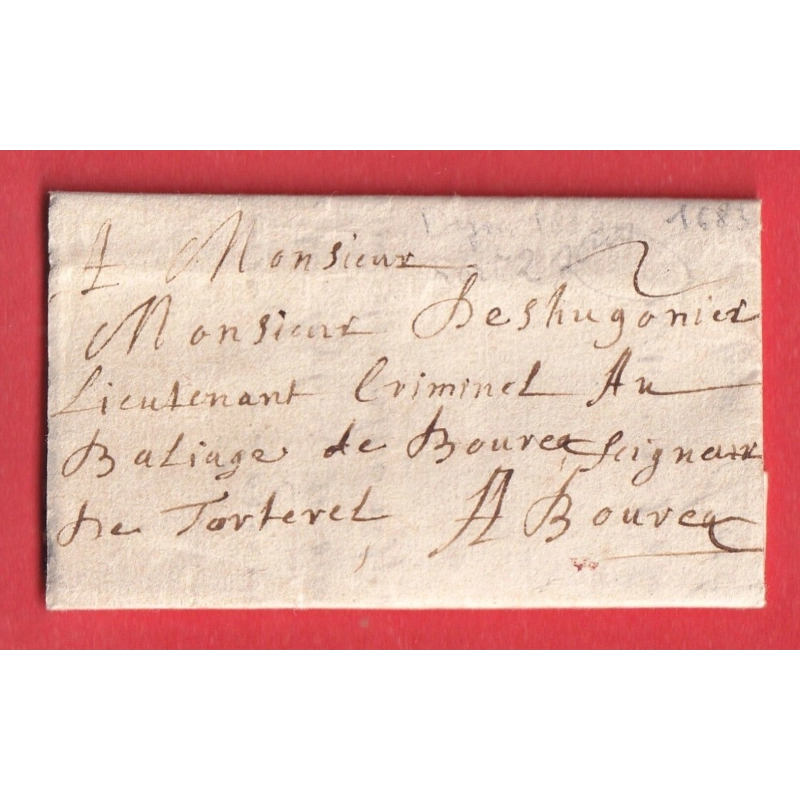 1683
A Monsieur
Monsieur Deshugonier
Lieutenant Criminel Au
Baliage de Bource Seigneur
De Torterel A Bource